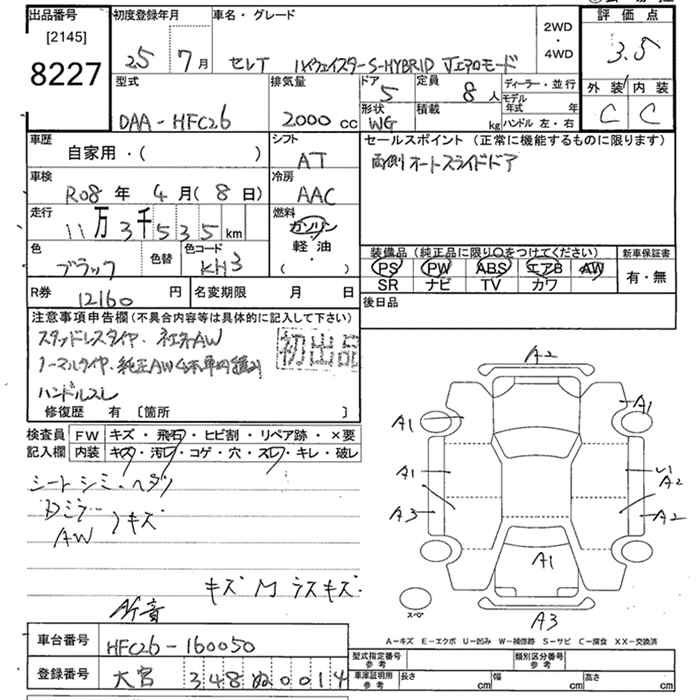 出品番号
[2145]
8227
初度登録年月
25 7月
車名・グレード
セレナ ハイウェイスターS-HYBRID Vエアロモード
2WD
・
4WD
評価点
3.5
外装 内装
C C
型式
DAA-HFC26
排気量
2000 cc
ドア
5
形状
WG
定員
8人
積載
kg
ディーラー・並行
モデル年式 年
ハンドル 左・右
車歴
自家用・( )
シフト
AT
車検
R08年 4月(8日)
冷房
AAC
走行
11万3千535km
燃料
ガソリン
軽油
( ・ )
色
ブラック
色替
色コード
KH3
R券
12160円
名変期限 月 日
セールスポイント(正常に機能するものに限ります)
両側オートスライドドア
装備品(純正品に限り〇をつけてください)
PS PW ABS エアB AW
SR ナビ TV カワ
新車保証書
有・無
後日品
注意事項申告欄(不具合内容等は具体的に記入して下さい)
スタッドレスタイヤ・社外AW
ノーマルタイヤ・純正AW4本車内積み
ハンドルスレ
初出品
修復歴 有 [箇所 ]
検査員記入欄
FW キズ・飛石・ヒビ割・リペア跡・×要
内装 キズ・汚レ・コゲ・穴・スレ・キレ・破レ
シートシミ・ヘタリ
Dミラー
AW
キズ
キズ M ラスキズ
A/F音
車台番号
HFC26-160050
登録番号
大宮 348 ぬ 0014
A2
A1
A1
A1
A2
A3
A2
A1
A3
スペア
A-キズ E-エクボ U-凹み W-補修跡 S-サビ C-腐食 XX-交換済
型式指定番号
参考
類別区分番号
参考
車庫証明用
参考
長さ cm
幅 cm
高さ cm